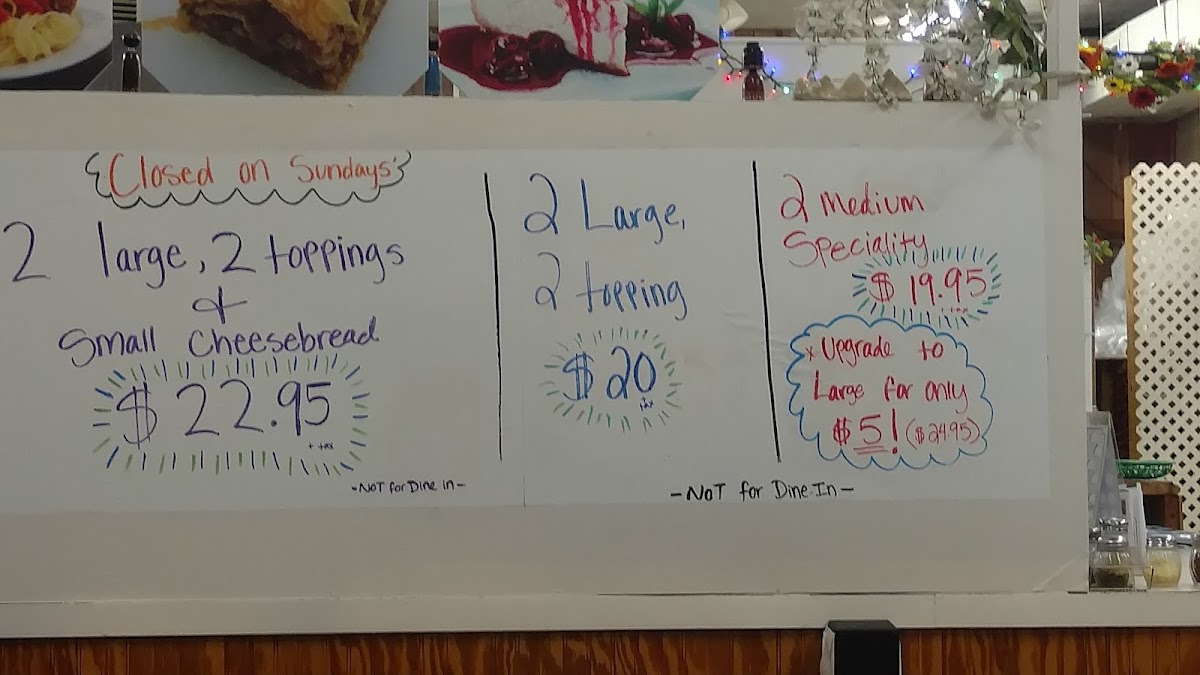 Closed on Sundays'
2 large, 2 toppings
+
Small Cheesebread
$ 22.95
+ tax
-NOT for Dine in-
2 Large,
2 topping
$ 20
tax
2 Medium
Speciality
$ 19.95
x Upgrade to
Large for only
$5! ($24.95)
-NOT for Dine-In-